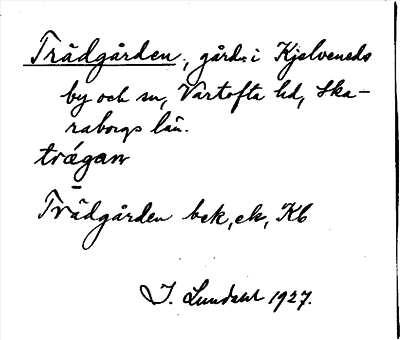 Trädgården, gård i Kjelveneds
by och sn, Vartofta hd, Ska-
raborgs län.
trǽgan
Trädgården bek, ek, Kb
J. Lundahl 1927.